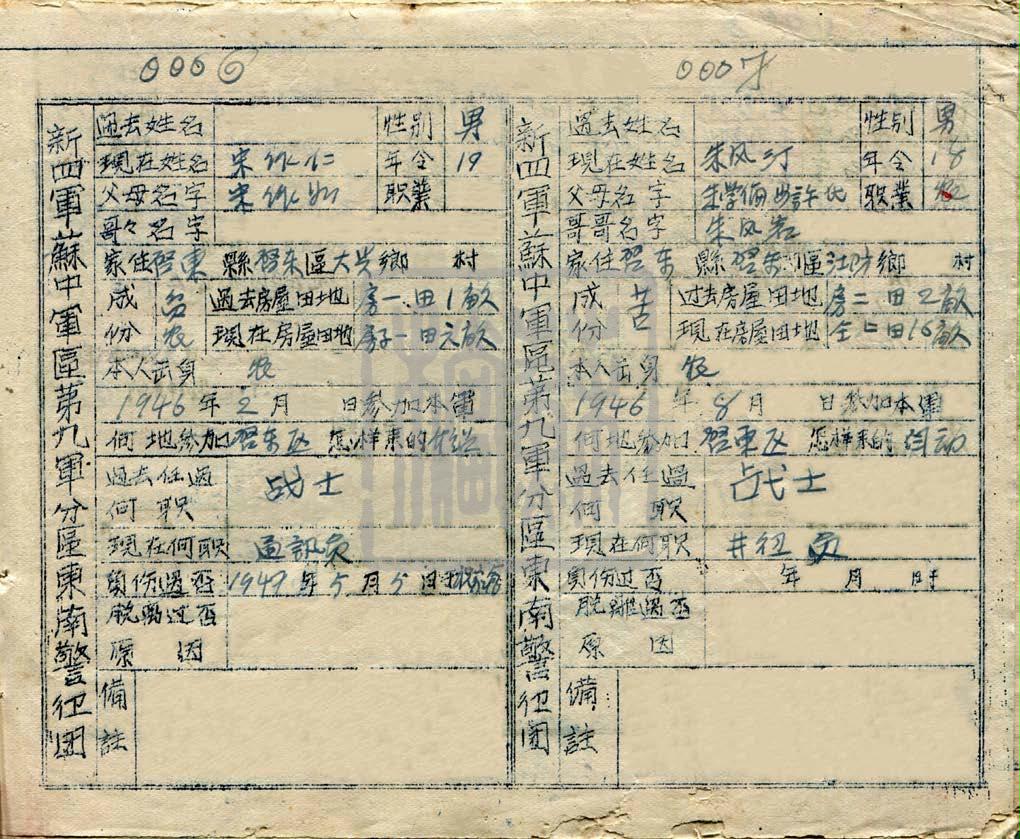 0006
新四軍蘇中軍區第九軍分區東南警衛团
過去姓名 性别 男
現在姓名 宋 仁 年令 19
父母名字 宋 职業
哥々名字
家住啓東縣啓东區大兴鄉 村
成份 贫农 過去房屋田地 房一田1畝
現在房屋田地 房子一田六畝
本人出身 农
1946年2月 日参加本軍
何地参加 啓东区 怎样来的
過去任過何职 战士
現在何职 通訊員
負伤過否 1947年5月5日
脱離过否
原因
備註
0007
新四軍蘇中軍區第九軍分區東南警衛团
過去姓名 性别 男
現在姓名 朱风 年令 18
父母名字 朱学 許氏 职業 农
哥哥名字 朱风
家住啓东縣啓东區江防鄉 村
成份 苦 过去房屋田地 房二田2畝
現在房屋田地 仝二田16畝
本人出身 农
1946年8月 日参加本軍
何地参加 啓東区 怎样来的 动
過去任過何职 战士
現在何职 員
負伤过否 年 月 日
脱離過否
原因
備註